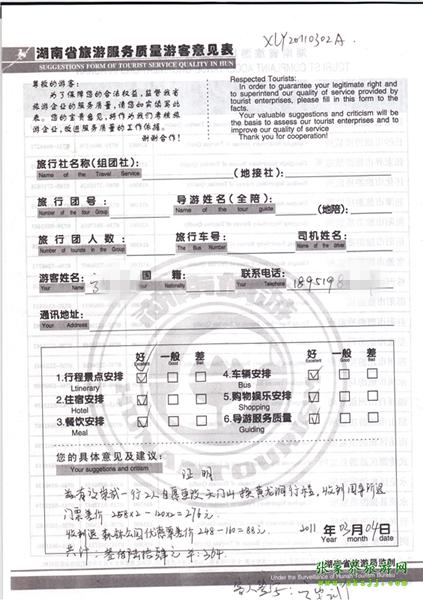 XLY20110302A
湖南省旅游服务质量游客意见表
SUGGESTIONS FORM OF TOURIST SERVICE QUALITY IN HUN
尊敬的游客:
为了保障您的合法权益,监督我省
旅游企业的服务质量,请您如实填写此
表。您的宝贵意见,将作为我们考核旅
游企业,改进服务质量的工作依据。
谢谢合作!
Respected Tourists:
In order to guarantee your legitimate right and
to superintend our quality of service provided by
tourist enterprises, please fill in this form to the
facts.
Your valuable suggestions and criticism will
be the basis to assess our tourist enterprises and to
improve our quality of service
Thank you for cooperation!
旅行社名称(组团社): (地接社):
Name of the Travel Service
旅行团号: 导游姓名(全陪): (地陪):
Number of the tour Group Name of the tour guide
旅行团人数: 旅行车号: 司机姓名:
Number of the tour Group The Bus Number Name of the driver
游客姓名: 国籍: 联系电话: 1895198
Your Name Your Nationality Your Telephone
通讯地址:
Your Address
好 一般 差 好 一般 差
Excellent Good Bad Excellent Good Bad
1.行程景点安排 4.车辆安排
Ltinerary Bus
2.住宿安排 5.购物娱乐安排
Hotel Shopping
3.餐饮安排 6.导游服务质量
Meal Guiding
您的具体意见及建议:
Your suggetions and critism
证明
一行2人自愿 天门山换黄龙洞行程,收到 退
门票差价 258×2-120×2=276元
收到退森林公园优惠票差价 248-160=88元
共计:叁佰陆拾肆元 ¥:364.
2011 年 03 月 04 日
Year month date
湖南省旅游局监制
Under the Surveillance of Hunan Tourism Bureau
客人签字:
张家界旅游网